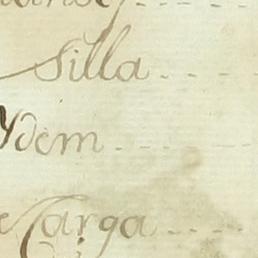 Silla
Ydem
Carga